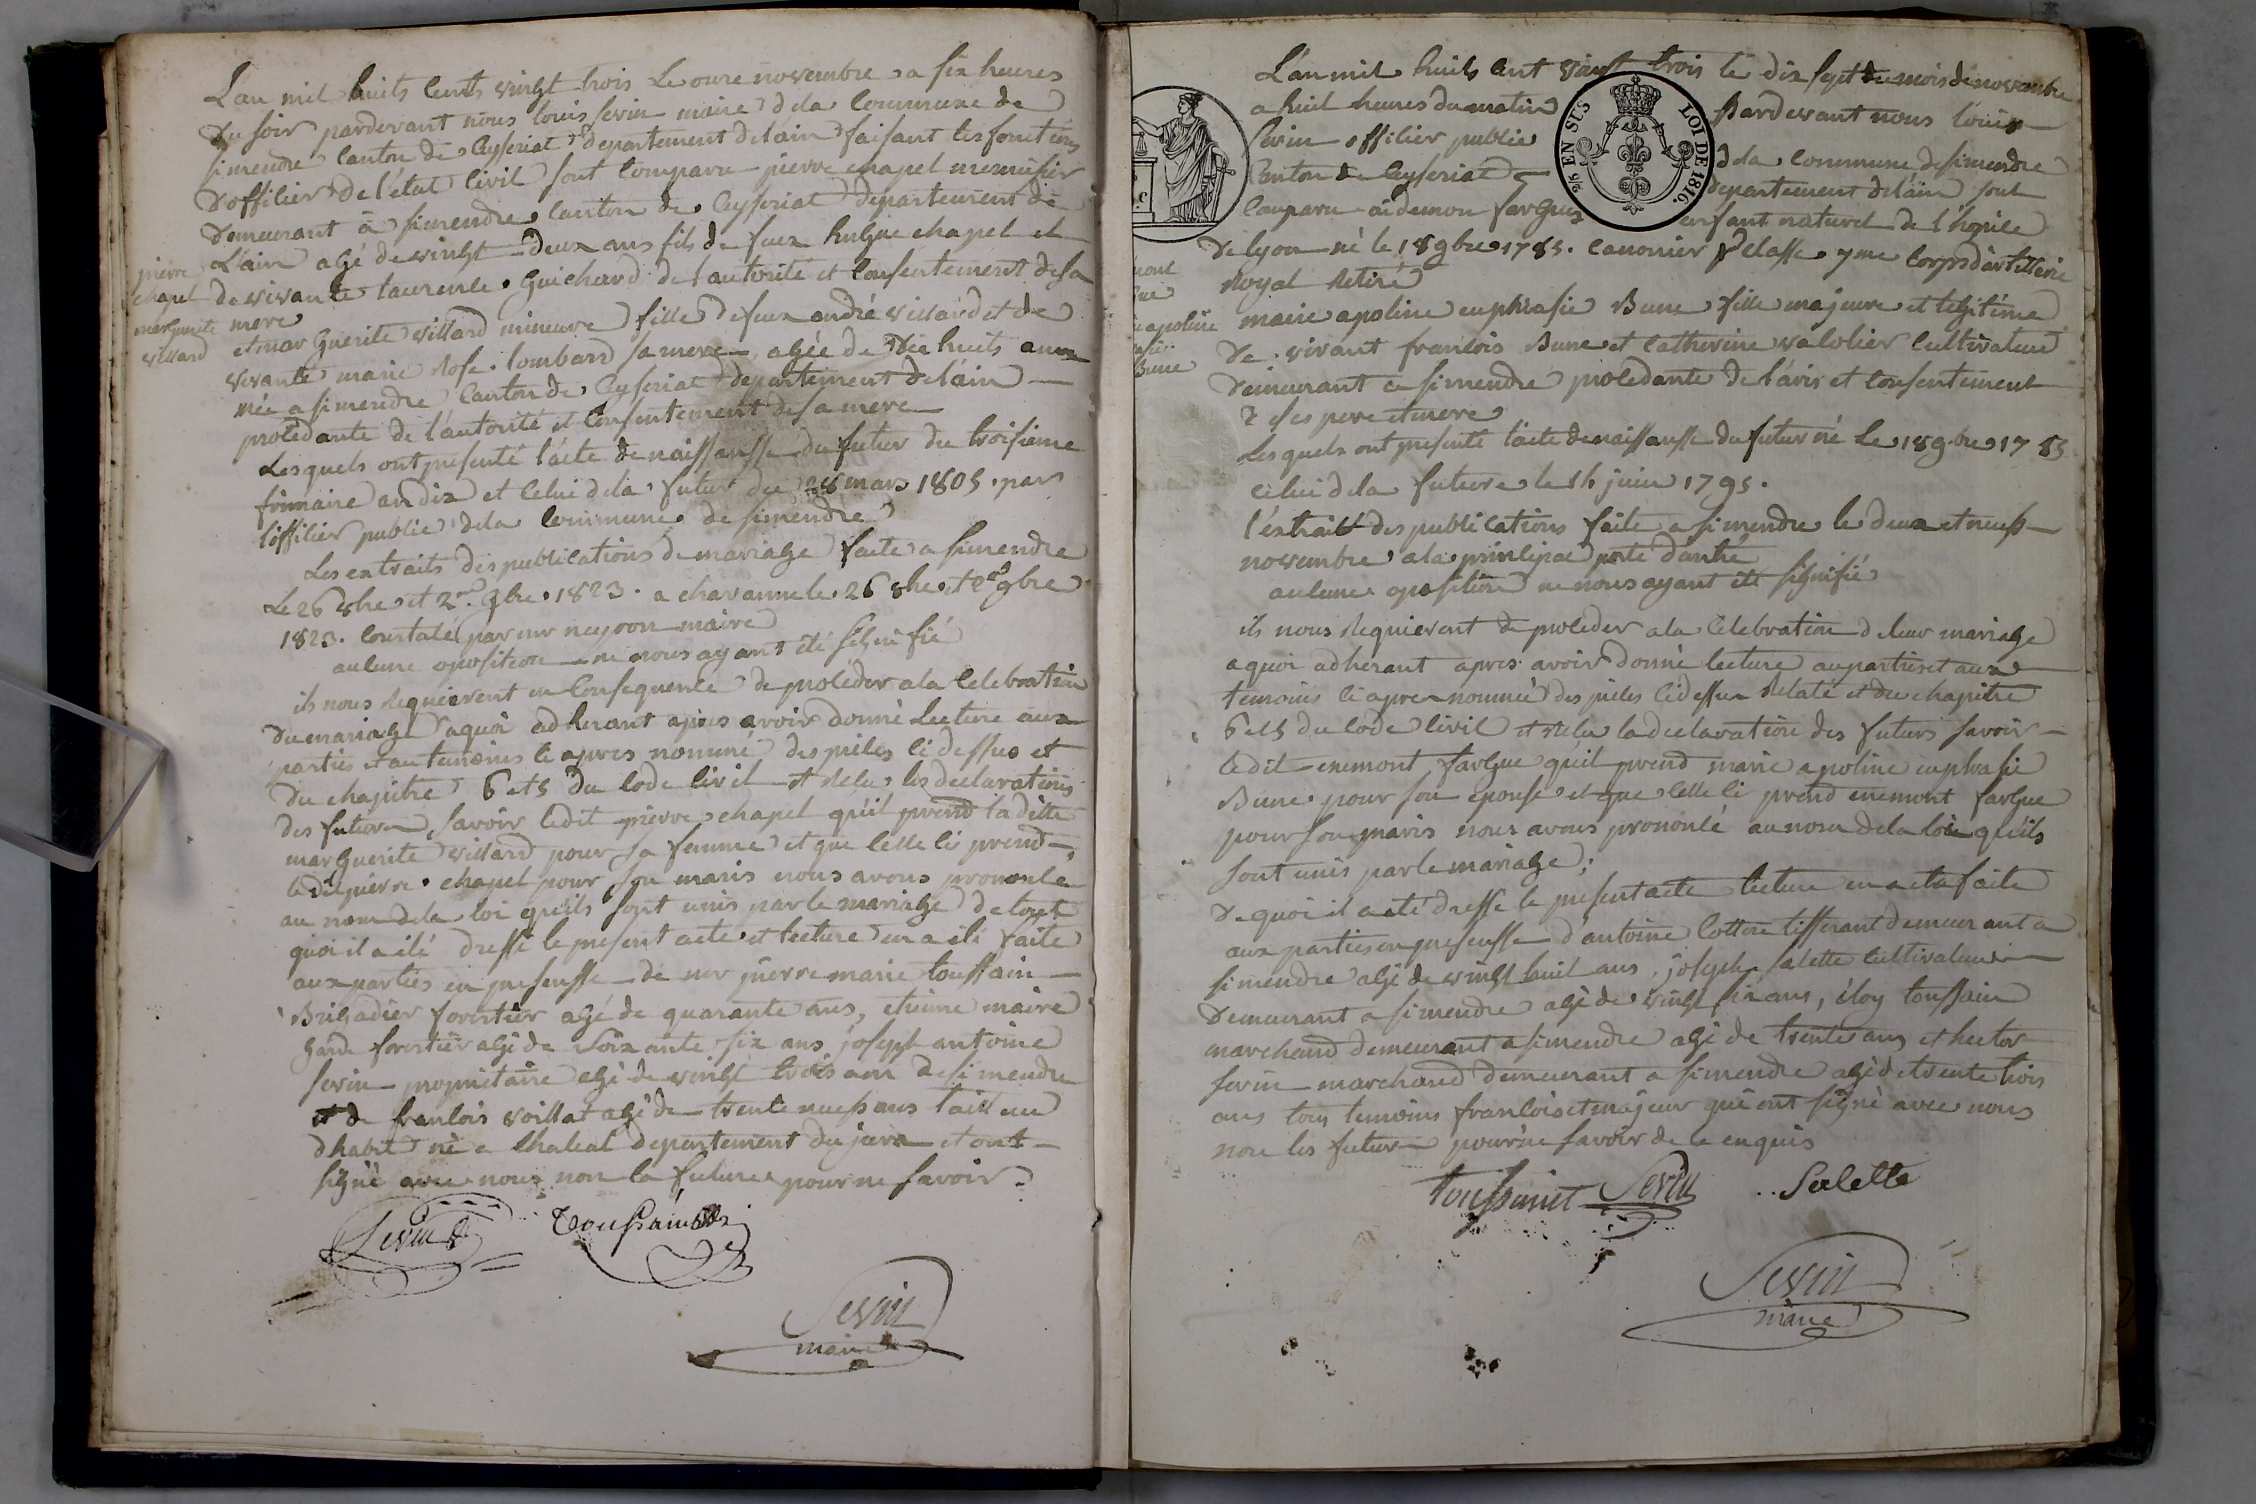 L'an mil huits cents vingt trois le onze novembre a six heures
du soir pardevant nous louis sevin maire dela commune de
simendre canton de Ceyseriat departement delain faisant les fonctions
doffilier de l'état civil sont comparu pierre chapel menuisier
demeurant à simendre canton de Ceyseriat departement de
L'ain agé de vingt deux ans fils de feux hugue chapel et
de vivante laurence Guichard de l'autorité et consentement de sa
mere
pierre
chapel
marguerite
villard
et marguerite villard mineure fille de feux andré villard et de
vivante marie rose lombard sa mere agée de dix huits ans
née a simendre canton de Ceyseriat departement delain
procedante de l'autorité et consentement de sa mere
Lesquels ont presenté l'acte de naissansse du futur du troisieme
frimaire an dix et celui dela futur du 28 mars 1805 par
l'offilier public dela commune de simendre
Les extraits des publications de mariage faite a simendre
Le 26 8bre et 2 9bre 1823. a chavanne le 26 8bre et 2 9bre
1823. constaté par mr neyron maire
aucune oposition ne nous ayant été signifié
ils nous requierent en consequence de proceder ala celebration
du mariage aquoi adherant apres avoir donné Lecture aux
parties et au temoins ci apres nommé des pieces ci dessus et
du chapitre 6 et 5 du code civil et relu les declarations
des futurs savoir ledit pierre chapel qu'il prend la ditte
marguerite villard pour sa femme et que celle ci prend
ledit pierre chapel pour son maris nous avons prononcé
au nom dela loi qu'ils sont unis par le mariage de tout
quoi il a été dressé le present acte et lecture en a été faite
aux parties en presensse de mr pierre marie toussain
Brigadier forestier agé de quarante ans, etienne maire
garde forestier agé de soixante six ans joseph antoine
sevin propriétaire agé de vingt trois ans de simendre
et de francois voillat agé de trente neuf ans tailleur
dhabit né a departement du jura et ont
signé avec nous non la future pour ne savoir
Sevin
Toussaint
Sevin
maire
L'an mil huits cent vingt trois le dix sept du mois de novembre
a huit heures du matin pardevant nous louis
sevin offilier public dela commune de simendre
Canton de Ceyseriat departement delain sont
Comparu enfant naturel de l'hopile
2/5 EN SUS
LOI DE 1816.
de lyon né le 18 9bre 1785. canonier classe 7me corps d'artillerie
royal retiré
marie apoline euphrasie Bune fille majeure et legitime
de vivant francois Bune et catherine cultivateur
demeurant a simendre procedante de l'avis et consentement
de ses pere et mere
Les quels ont presenté l'acte de naissansse du futur né le 18 9bre 1785
celui dela future le juin 1795.
l'extrait des publications faite a simendre le deux et neuf
novembre ala principae porte d'antré
aucune oposition ne nous ayant été signifié
ils nous requierent de proceder ala celebration de leur mariage
aquoi adherant apres avoir donné lecture au parties et aux
temoins ci apres nommé des pieces ci dessus relaté et du chapitre
6 et 5 du code civil et relu la declaration des futurs savoir
ledit enemont fargue quil prend marie apoline euphrasie
Bune pour son epouse et que celle ci prend enemont fargue
pour son maris nous avons prononcé au nom dela loi qu'ils
sont unis par le mariage;
De quoi il a été dressé le present acte lecture en a été faite
aux parties en presensse d'antoine tisserant demeurant a
simendre agé de vingt huit ans, joseph salette cultivateur
demeurant a simendre agé de vingt six ans, éloy toussain
marchand demeurant a simendre agé de trente ans et hector
sevin marchand demeurant a simendre agé de trente trois
ans tous temoins francois et majeur qui ont signé avec nous
non les futur pour ne savoir de ce enquis
toussaint Sevin Salette
Sevin
maire